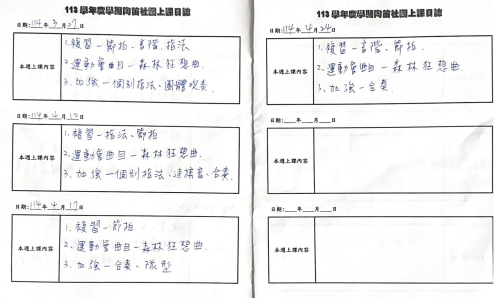 113 學年度學期陶笛社團上課日誌
日期:114年3月27日
本週上課內容
1.複習-節拍、音階、指法
2.運動會曲目-森林狂想曲.
3.加強-個別指法、團體吹奏.
日期:114年4月10日
本週上課內容
1.複習-指法、節拍
2.運動會曲目-森林狂想曲.
3.加強-個別指法、連接音、合奏.
日期:114年4月17日
本週上課內容
1.複習-節拍
2.運動會曲目-森林狂想曲.
3.加強-合奏、隊型
113 學年度學期陶笛社團上課日誌
日期:114年4月24日
本週上課內容
1.複習-音階、節拍.
2.運動會曲目-森林狂想曲.
3.加強-合奏.
日期:___年___月___日
本週上課內容
日期:___年___月___日
本週上課內容